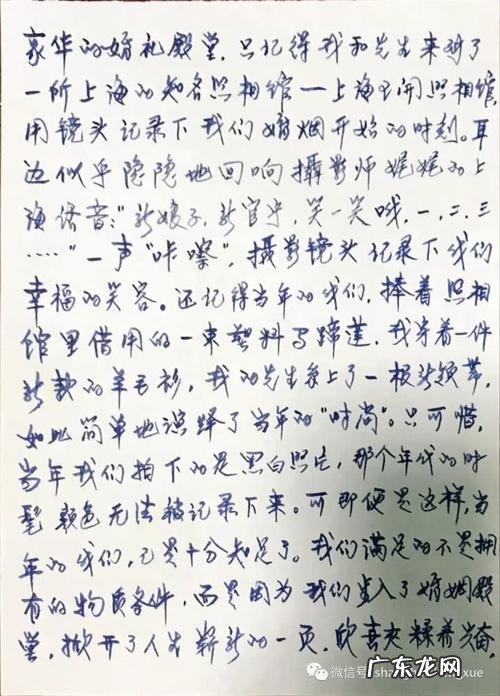 豪华的婚礼殿堂，只记得我和先生来到了
一所上海的知名照相馆——上海王开照相馆
用镜头记录下我们婚姻开始的时刻。耳
边似乎隐隐地回响摄影师娓娓的上
海话音："新娘子，新官人，笑一笑哦，一、二、三
……"一声"咔嚓"，摄影镜头记录下我们
幸福的笑容。还记得当年的我们，捧着照相
馆里借用的一束塑料马蹄莲，我穿着一件
新款的羊毛衫，我的先生系上了一根新领带，
如此简单地诠释了当年的"时尚"。只可惜，
当年我们拍下的是黑白照片，那个年代的时
髦颜色无法被记录下来。可即便是这样，当
年的我们，已是十分知足了。我们满足的不是拥
有的物质条件，而是因为我们步入了婚姻殿
堂，掀开了人生崭新的一页，欣喜夹糅着兴奋，
微信号: sha xue
广东龙网